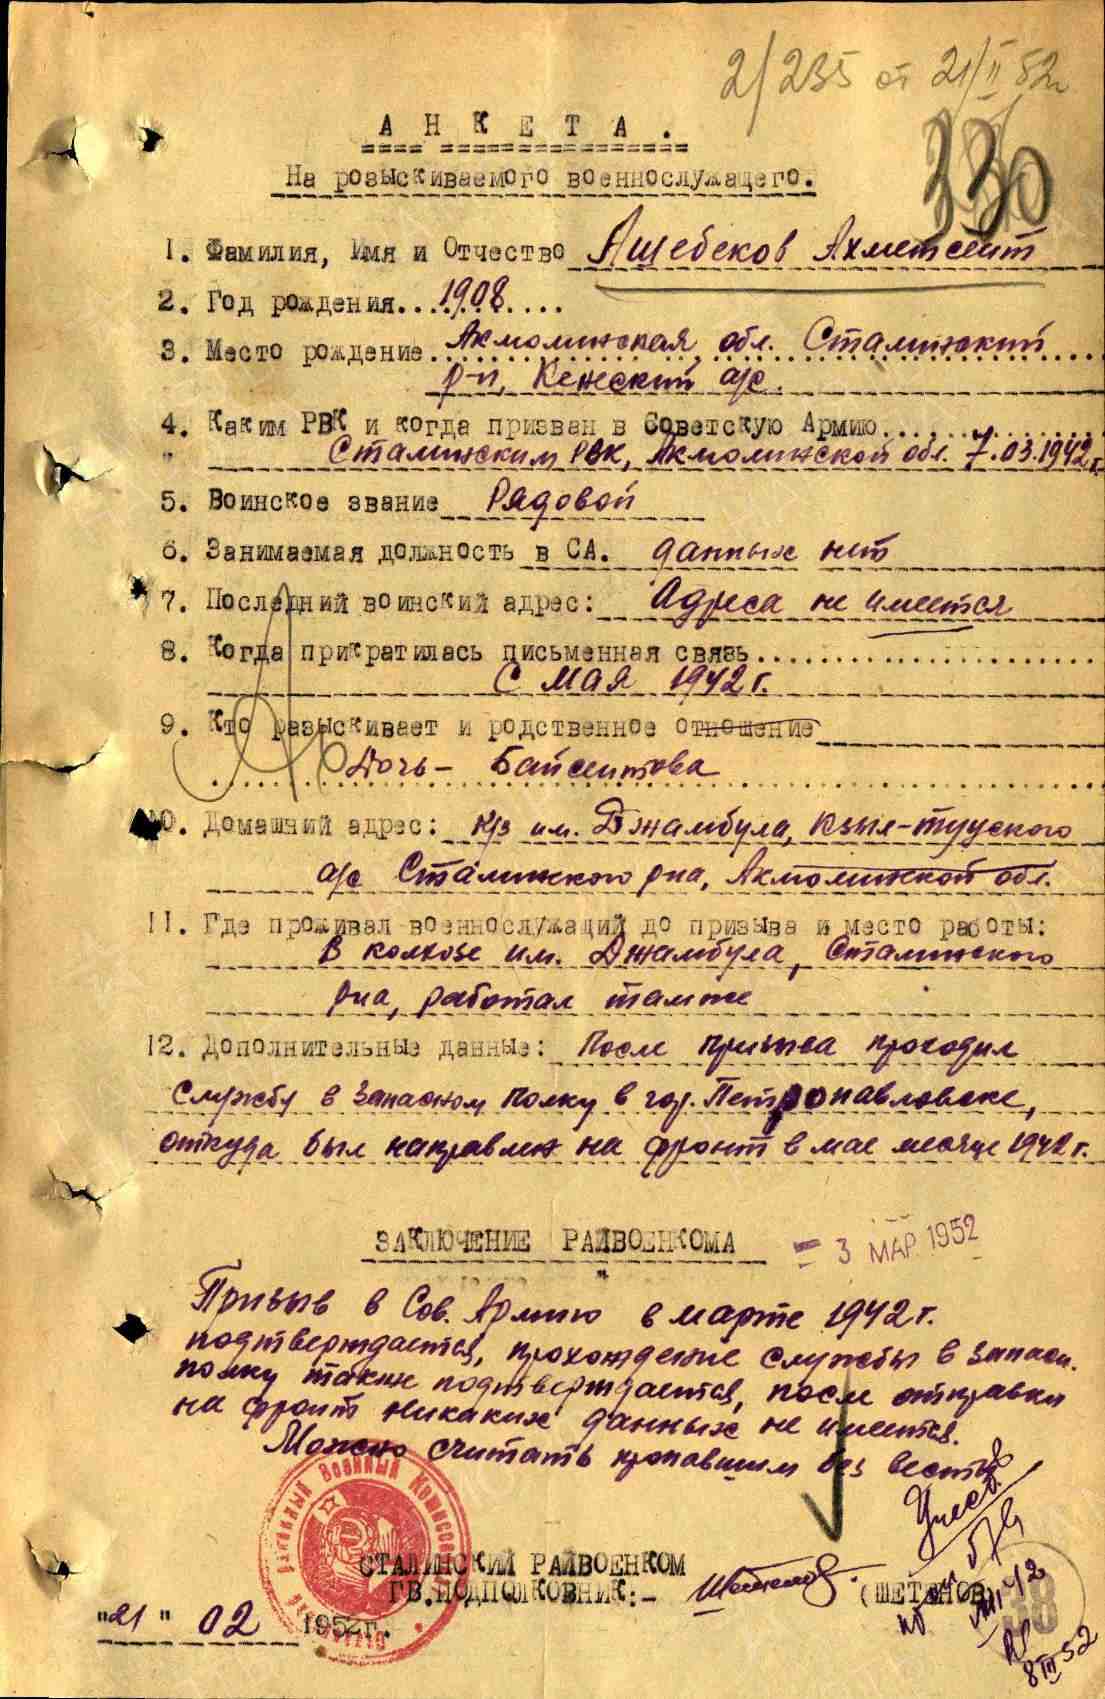 2/235 от 21/II 52г
330
АНКЕТА.
На розыскиваемого военнослужащего.
1. Фамилия, Имя и Отчество Ашебеков Ахметсеит
2. Год рождения.. 1908 ....
3. Место рождение Акмолинская обл. Сталинский
р-н, Кенеский а/с.
4. Каким РВК и когда призван в Советскую Армию....
" Сталинским РВК, Акмолинской обл. 7.03.1942 г.
5. Воинское звание Рядовой
6. Занимаемая должность в СА. данных нет
7. Последний воинский адрес: Адреса не имеется
8. Когда прикратилась письменная связь....
С мая 1942 г.
9. Кто разыскивает и родственное отношение
Дочь - Байсеитова
10. Домашний адрес: к/з им. Джамбула, Кзыл-тууского
а/с Сталинского р-на, Акмолинской обл.
11. Где проживал военнослужащий до призыва и место работы:
В колхозе им. Джамбула, Сталинского
р-на, работал там же
12. Дополнительные данные: После призыва проходил
службу в запасном полку в гор. Петропавловске,
откуда был направлен на фронт в мае месяце 1942 г.
ЗАКЛЮЧЕНИЕ РАЙВОЕНКОМА
- 3 МАР 1952
Призыв в Сов. Армию в марте 1942 г.
подтверждается, прохождение службы в запасн.
полку также подтверждается, после отправки
на фронт никаких данных не имеется.
Можно считать пропавшим без вести
СТАЛИНСКИЙ РАЙВОЕНКОМ
ГВ.ПОДПОЛКОВНИК:-
(ШЕТЕНОВ)
"21" 02 1952г.
38
8 III 52